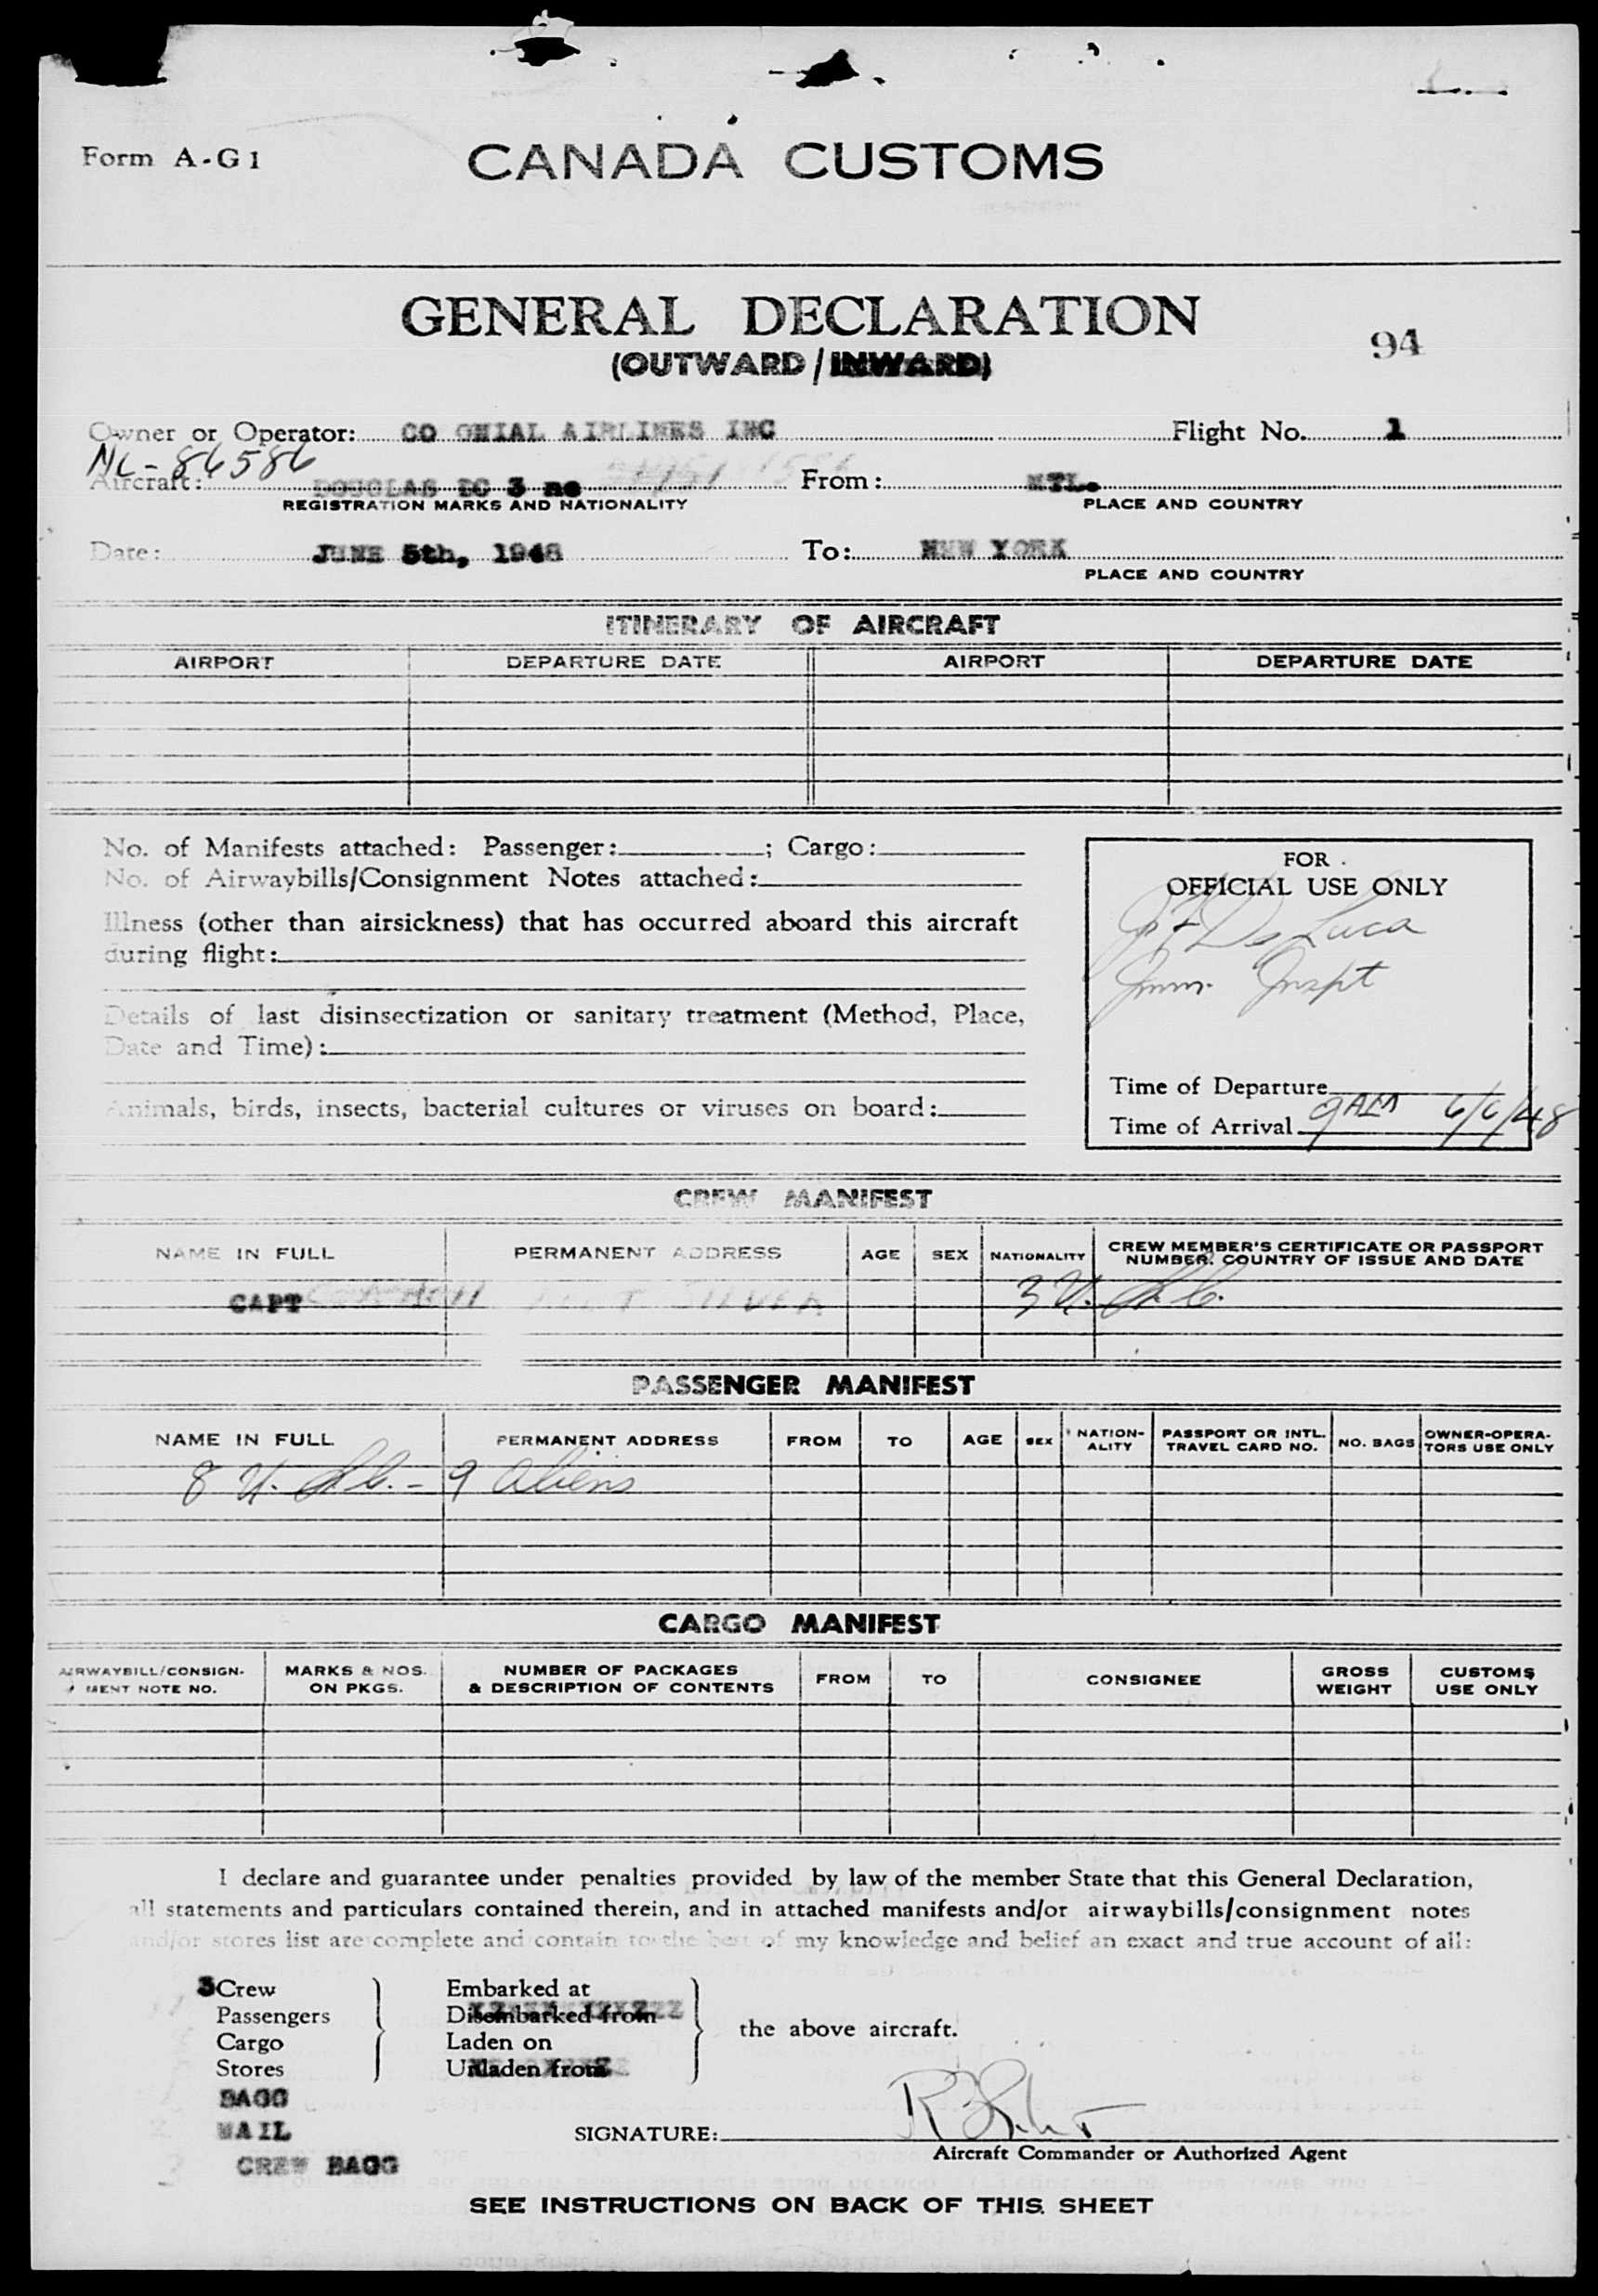 Form A-G1
CANADA CUSTOMS
GENERAL DECLARATION
(OUTWARD / INWARD)
94
Owner or Operator: CO ONIAL AIRLINES INC Flight No. 1
NC-86586
Aircraft: DOUGLAS DC 3 nc From: MTL.
REGISTRATION MARKS AND NATIONALITY PLACE AND COUNTRY
Date: JUNE 5th, 1948 To: NEW YORK
PLACE AND COUNTRY
ITINERARY OF AIRCRAFT
AIRPORT DEPARTURE DATE AIRPORT DEPARTURE DATE
No. of Manifests attached: Passenger: ; Cargo:
No. of Airwaybills/Consignment Notes attached:
Illness (other than airsickness) that has occurred aboard this aircraft
during flight:
Details of last disinsectization or sanitary treatment (Method, Place,
Date and Time):
Animals, birds, insects, bacterial cultures or viruses on board:
FOR
OFFICIAL USE ONLY
De Luca
Imm. Inspt
Time of Departure
Time of Arrival 9 AM 6/6/48
CREW MANIFEST
NAME IN FULL PERMANENT ADDRESS AGE SEX NATIONALITY CREW MEMBER'S CERTIFICATE OR PASSPORT
NUMBER. COUNTRY OF ISSUE AND DATE
CAPT 3 U.
PASSENGER MANIFEST
NAME IN FULL PERMANENT ADDRESS FROM TO AGE SEX NATION-
ALITY PASSPORT OR INTL.
TRAVEL CARD NO. NO. BAGS OWNER-OPERA-
TORS USE ONLY
8 U. - 9 Aliens
CARGO MANIFEST
AIRWAYBILL/CONSIGN-
MENT NOTE NO. MARKS & NOS.
ON PKGS. NUMBER OF PACKAGES
& DESCRIPTION OF CONTENTS FROM TO CONSIGNEE GROSS
WEIGHT CUSTOMS
USE ONLY
I declare and guarantee under penalties provided by law of the member State that this General Declaration,
all statements and particulars contained therein, and in attached manifests and/or airwaybills/consignment notes
and/or stores list are complete and contain to the best of my knowledge and belief an exact and true account of all:
3 Crew Embarked at
Passengers Disembarked from
Cargo Laden on
Stores Unladen from
the above aircraft.
BAGG
MAIL
CREW BAGG
SIGNATURE:
Aircraft Commander or Authorized Agent
SEE INSTRUCTIONS ON BACK OF THIS SHEET